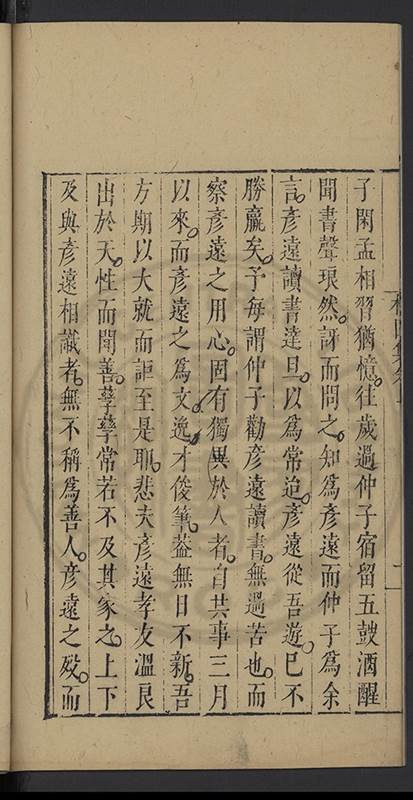 子閑孟相習猶憶往歲過仲子宿留五鼓酒醒
聞書聲琅然訝而問之知為彥遠而仲子為余
言彥遠讀書達旦以為常迨彥遠從吾遊已不
勝羸矣予每謂仲子勸彥遠讀書無過苦也而
察彥遠之用心固有獨異於人者自共事三月
以來而彥遠之為文逸才俊筆葢無日不新吾
方期以大就而詎至是耶悲夫彥遠孝友溫良
出於天性而聞善孳孳常若不及其家之上下
及與彥遠相識者無不稱為善人彥遠之歿而